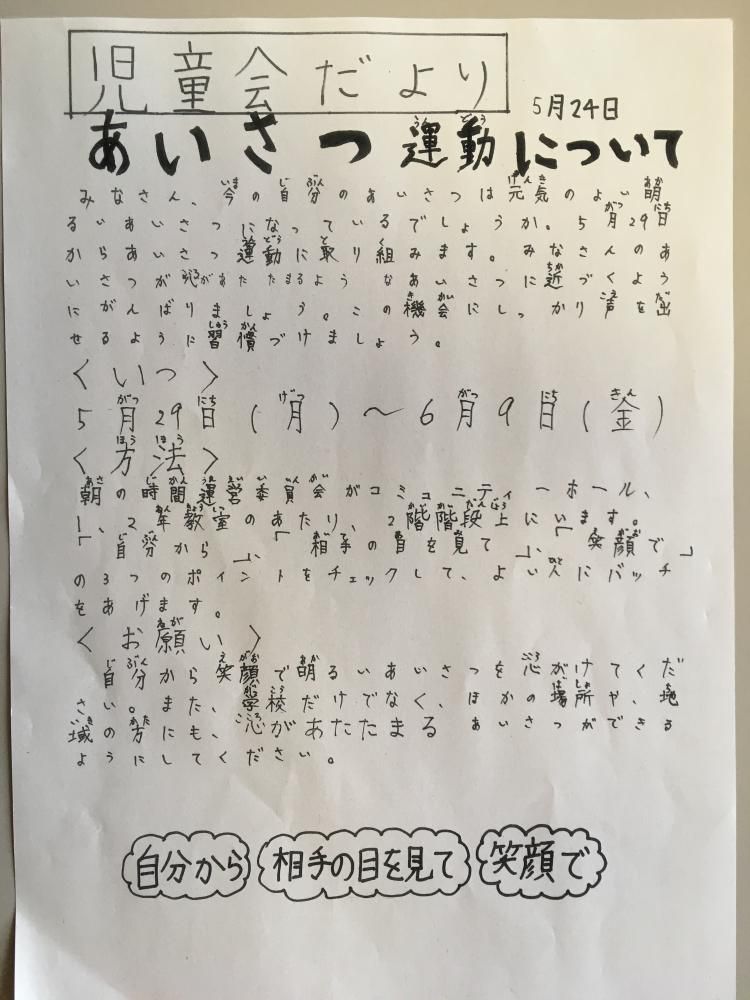 児童会だより
5月24日
あいさつ運動について
みなさん、今の自分のあいさつは元気のよい明
るいあいさつになっているでしょうか。5月29日
からあいさつ運動に取り組みます。みなさんのあ
いさつが心があたたまるようなあいさつに近づくよう
にがんばりましょう。この機会にしっかり声を出
せるように習慣づけましょう。
<いつ>
5月29日(月)~6月9日(金)
<方法>
朝の時間運営委員会がコミュニティーホール、
1、2年教室のあたり、2階階段上にいます。
「自分から」、「相手の目を見て」、「笑顔で」
の3つのポイントをチェックして、よい人にバッチ
をあげます。
<お願い>
自分から笑顔で明るいあいさつを心がけてくだ
さい。また、学校だけでなく、ほかの場所や、地
域の方にも、心があたたまるあいさつができる
ようにしてください。
自分から 相手の目を見て 笑顔で